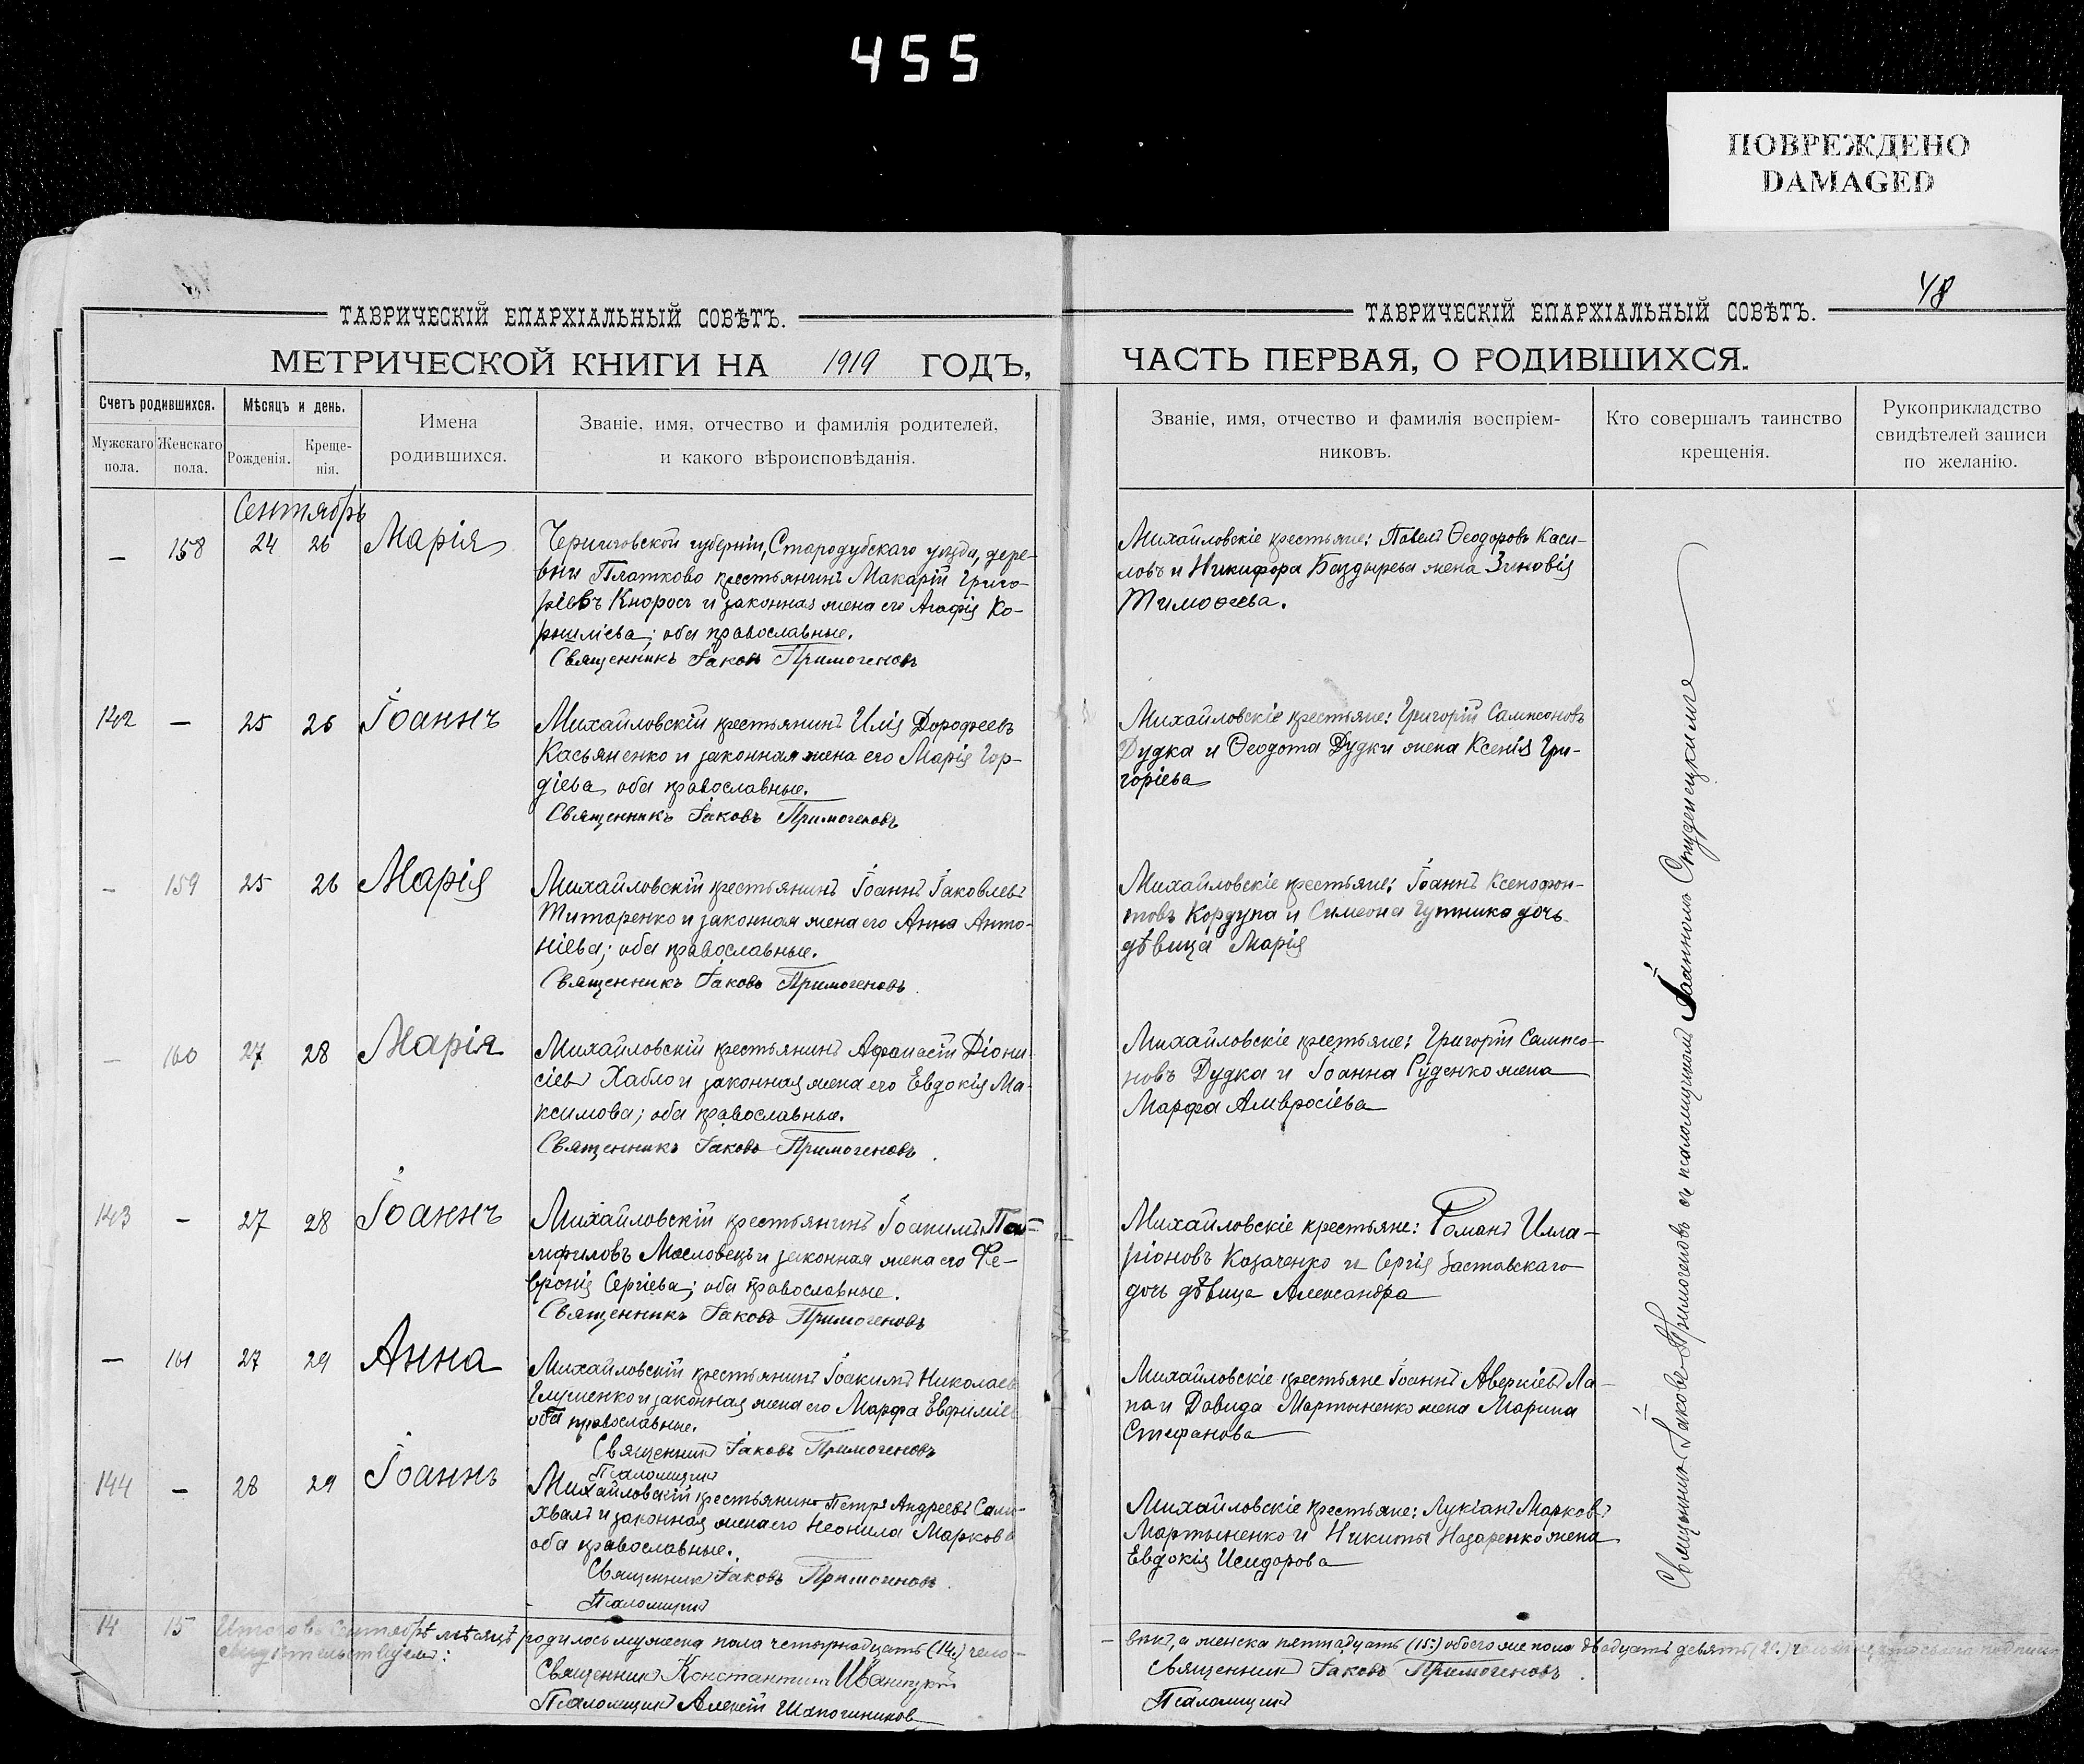 455
ПОВРЕЖДЕНО
DAMAGED
48
ТАВРИЧЕСКІЙ ЕПАРХІАЛЬНЫЙ СОВѢТЪ.
МЕТРИЧЕСКОЙ КНИГИ НА 1919 ГОДЪ,
Счетъ родившихся.
Мѣсяцъ и день.
Имена родившихся.
Званіе, имя, отчество и фамилія родителей,
и какого вѣроисповѣданія.
Мужскаго пола.
Женскаго пола.
Рожденія.
Креще-
нія.
Сентябрь
— 158 24 26 Марія
Черниговской губерніи, Стародубскаго уѣзда, дере-
вни Платково крестьянинъ Макарій Григо-
ріевъ Кнорог и законная жена его Агафія Ко-
рниліева; оба православные.
Священникъ Іаковъ Примогеновъ
142 — 25 26 Іоаннъ
Михайловскій крестьянинъ Илія Дорофеевъ
Касьяненко и законная жена его Марія Гор-
діева оба православные.
Священникъ Іаковъ Примогеновъ
— 159 25 26 Марія
Михайловскій крестьянинъ Іоаннъ Іаковлевъ
Титаренко и законная жена его Анна Анто-
ніева; оба православные.
Священникъ Іаковъ Примогеновъ.
— 160 27 28 Марія
Михайловскій крестьянинъ Афанасій Діони-
сіевъ Хабло и законная жена его Евдокія Ма-
ксимова; оба православные.
Священникъ Іаковъ Примогеновъ.
143 — 27 28 Іоаннъ
Михайловскій крестьянинъ Іоакимъ Пам-
мфиловъ Масловецъ и законная жена его Фе-
вронія Сергіева; оба православные.
Священникъ Іаковъ Примогеновъ
— 161 27 29 Анна
Михайловскій крестьянинъ Іоакимъ Николаев
Глушенко и законная жена его Марфа Евфиміев
оба православные.
Священникъ Іаковъ Примогеновъ
Псаломщикъ
144 — 28 29 Іоаннъ
Михайловскій крестьянинъ Петръ Андреевъ Само-
хвалъ и законная жена его Неонила Маркова
оба православные.
Священникъ Іаковъ Примогеновъ.
Псаломщикъ
14 15 Итого въ Сентябрѣ мѣсяцѣ родилось мужеска пола четырнадцать (14) чело-
свидѣтельствуемъ:
Священникъ Константинъ Иваницкій
Псаломщикъ Алексій Шапошниковъ
ТАВРИЧЕСКІЙ ЕПАРХІАЛЬНЫЙ СОВѢТЪ.
ЧАСТЬ ПЕРВАЯ, О РОДИВШИХСЯ.
Званіе, имя, отчество и фамилія воспріем-
никовъ.
Кто совершалъ таинство
крещенія.
Рукоприкладство
свидѣтелей записи
по желанію.
Михайловскіе крестьяне: Павелъ Ѳеодоровъ Каси-
ловъ и Никифора Баздырева жена Зиновія
Тимоѳеева.
Михайловскіе крестьяне: Григорій Сампсоновъ
Дудка и Ѳеодота Дудки жена Ксенія Гри-
горіева
Михайловскіе крестьяне: Іоаннъ Ксенофон-
товъ Кордупа и Симеона Гутника дочь
дѣвица Марія
Михайловскіе крестьяне: Григорій Сампсо-
новъ Дудка и Іоанна Руденко жена
Марфа Амвросіева
Михайловскіе крестьяне: Романъ Илла-
ріоновъ Казаченко и Сергія Заставскаго
дочь дѣвица Александра
Михайловскіе крестьяне Іоаннъ Аверкіевъ Ла-
па и Давида Мартыненко жена Марина
Стефанова
Михайловскіе крестьяне: Лукіанъ Марковъ
Мартыненко и Никиты Назаренко жена
Евдокія Исидорова
Священникъ Іаковъ Примогеновъ съ псаломщикомъ Іоанномъ Студенецкимъ
вѣкъ, а женска пятнадцать (15) обоего же пола двадцать девять (29)
Священникъ Іаковъ Примогеновъ.
Псаломщикъ